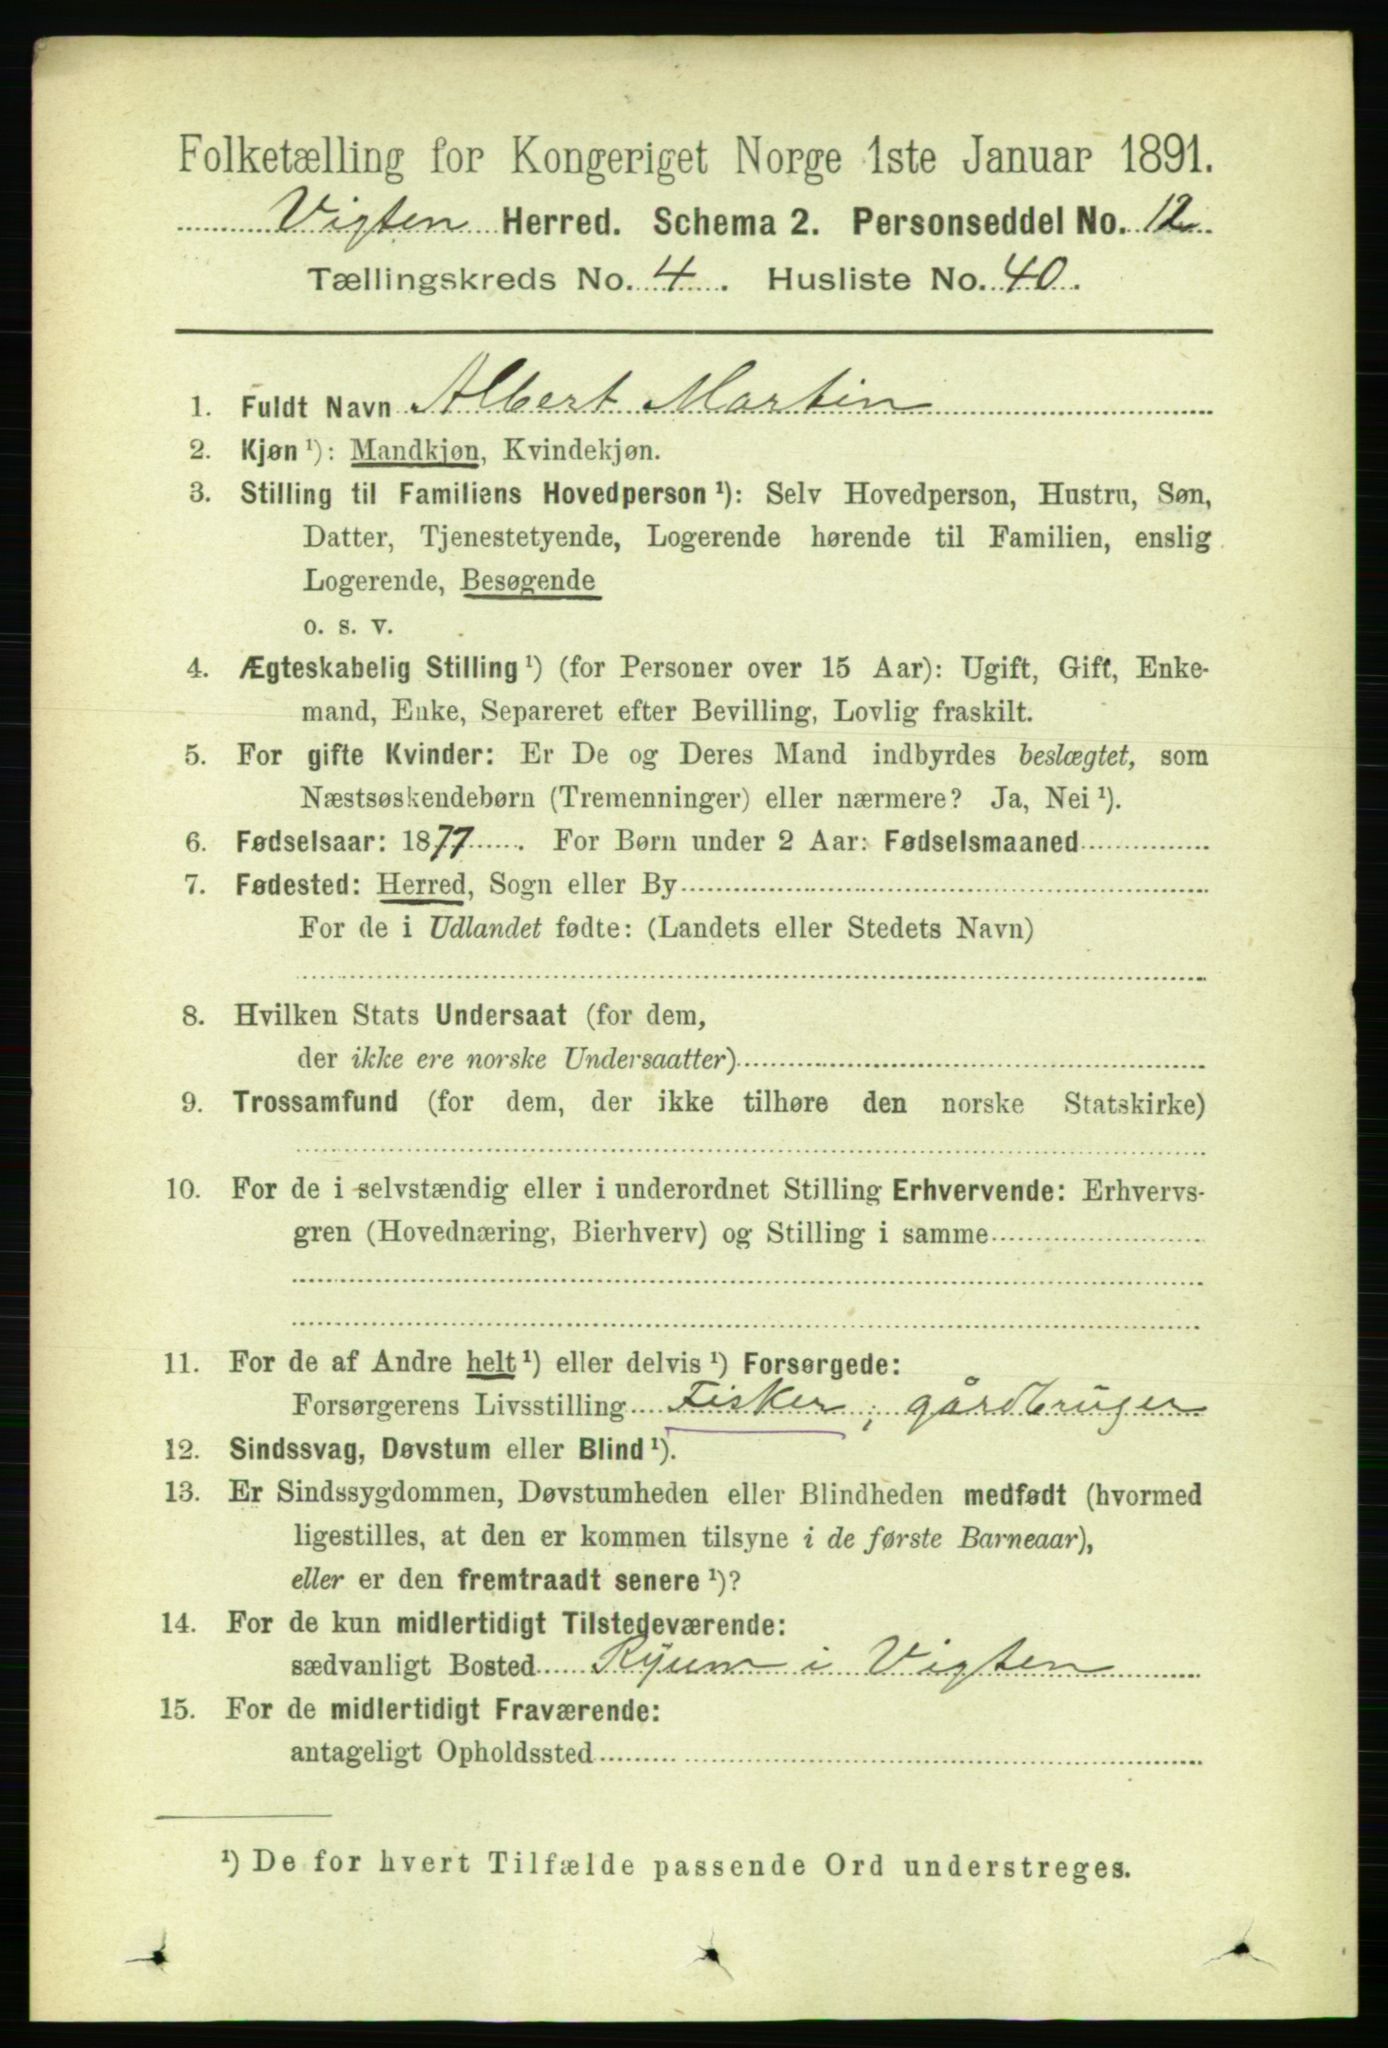 Folketælling for Kongeriget Norge 1ste Januar 1891.
Vigten Herred. Schema 2. Personseddel No. 12.
Tællingskreds No. 4. Husliste No. 40.
1. Fuldt Navn Albert Martin
2. Kjøn ¹): Mandkjøn, Kvindekjøn.
3. Stilling til Familiens Hovedperson ¹): Selv Hovedperson, Hustru, Søn,
Datter, Tjenestetyende, Logerende hørende til Familien, enslig
Logerende, Besøgende
o. s. v.
4. Ægteskabelig Stilling ¹) (for Personer over 15 Aar): Ugift, Gift, Enke-
mand, Enke, Separeret efter Bevilling, Lovlig fraskilt.
5. For gifte Kvinder: Er De og Deres Mand indbyrdes beslægtet, som
Næstsøskendebørn (Tremenninger) eller nærmere? Ja, Nei ¹).
6. Fødselsaar: 1877. For Børn under 2 Aar: Fødselsmaaned
7. Fødested: Herred, Sogn eller By
For de i Udlandet fødte: (Landets eller Stedets Navn)
8. Hvilken Stats Undersaat (for dem,
der ikke ere norske Undersaatter)
9. Trossamfund (for dem, der ikke tilhøre den norske Statskirke)
10. For de i selvstændig eller i underordnet Stilling Erhvervende: Erhvervs-
gren (Hovednæring, Bierhverv) og Stilling i samme
11. For de af Andre helt ¹) eller delvis ¹) Forsørgede:
Forsørgerens Livsstilling Fisker; gårdbruger
12. Sindssvag, Døvstum eller Blind ¹).
13. Er Sindssygdommen, Døvstumheden eller Blindheden medfødt (hvormed
ligestilles, at den er kommen tilsyne i de første Barneaar),
eller er den fremtraadt senere ¹)?
14. For de kun midlertidigt Tilstedeværende:
sædvanligt Bosted Ryum i Vigten
15. For de midlertidigt Fraværende:
antageligt Opholdssted
¹) De for hvert Tilfælde passende Ord understreges.